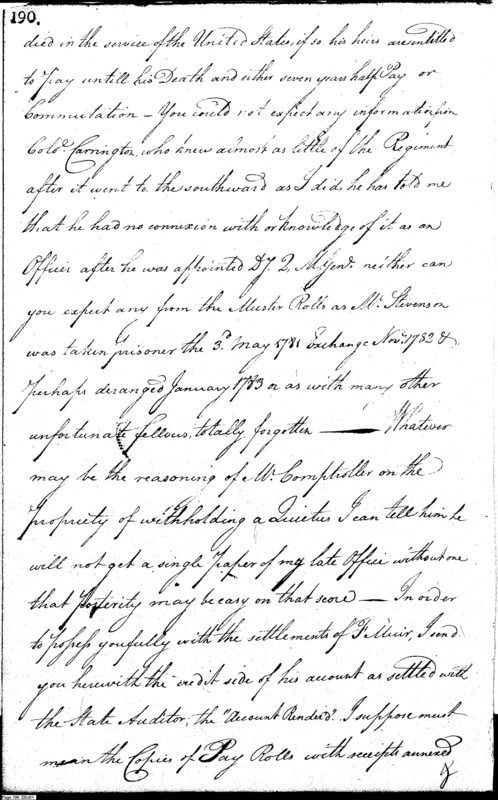 190.
died in the service of the United States, if so his heirs are entitled
to Pay untill his Death and either seven years half Pay or
Commutation – You could not expect any information from
Colo. Carrington, who knew almost as little of the Regiment
after it went to the southward as I did, he has told me
that he had no connexion with or knowledge of it as an
Officer after he was appointed Dy. Q. M. Genl. neither can
you expect any from the Muster Rolls as Mr. Stevenson
was taken prisoner the 3d. May 1781 Exchange Novr. 1782 &
perhaps deranged January 1783 or as with many other
unfortunate fellows, totally forgotten —— Whatever
may be the reasoning of Mr. Comptroller on the
propriety of withholding a Quietus I can tell him he
will not get a single Paper of my late Office without one
that posterity may be easy on that score — In order
to possess you fully with the settlements of F Muir, I send
you herewith the credit side of his account as settled with
the State Auditor, the "Account Render'd". I suppose must
mean the Copies of Pay Rolls with receipts annexed